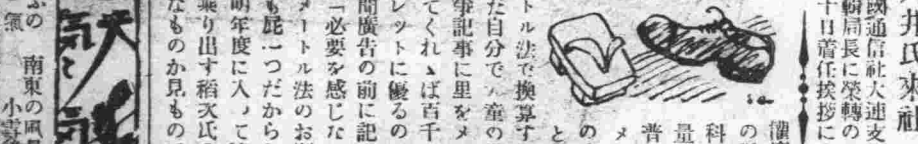 井氏來社
國通信社大連支
轄局長に榮轉の
十日着任挨拶に
の
科
量
普
メ
の
と
トル法で換算す
だ自分で
事記事に里をメ
てくれゝば百千
レットに優るの
間廣告の前に記
「必要を感じな
メートル法のお
も屁一つだから
明年度に入って
乘り出す稻次氏
なものか見もの
天気と
南東の風
小雲